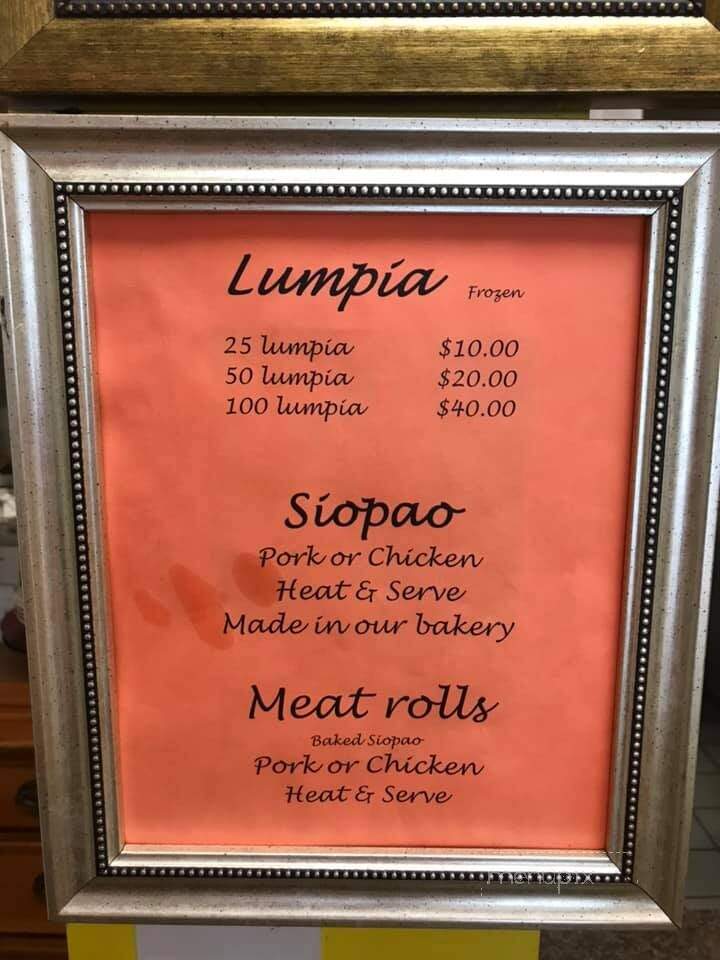 Lumpia Frozen
25 lumpia $10.00
50 lumpia $20.00
100 lumpia $40.00
Siopao
Pork or Chicken
Heat & Serve
Made in our bakery
Meat rolls
Baked Siopao
Pork or Chicken
Heat & Serve
menupix